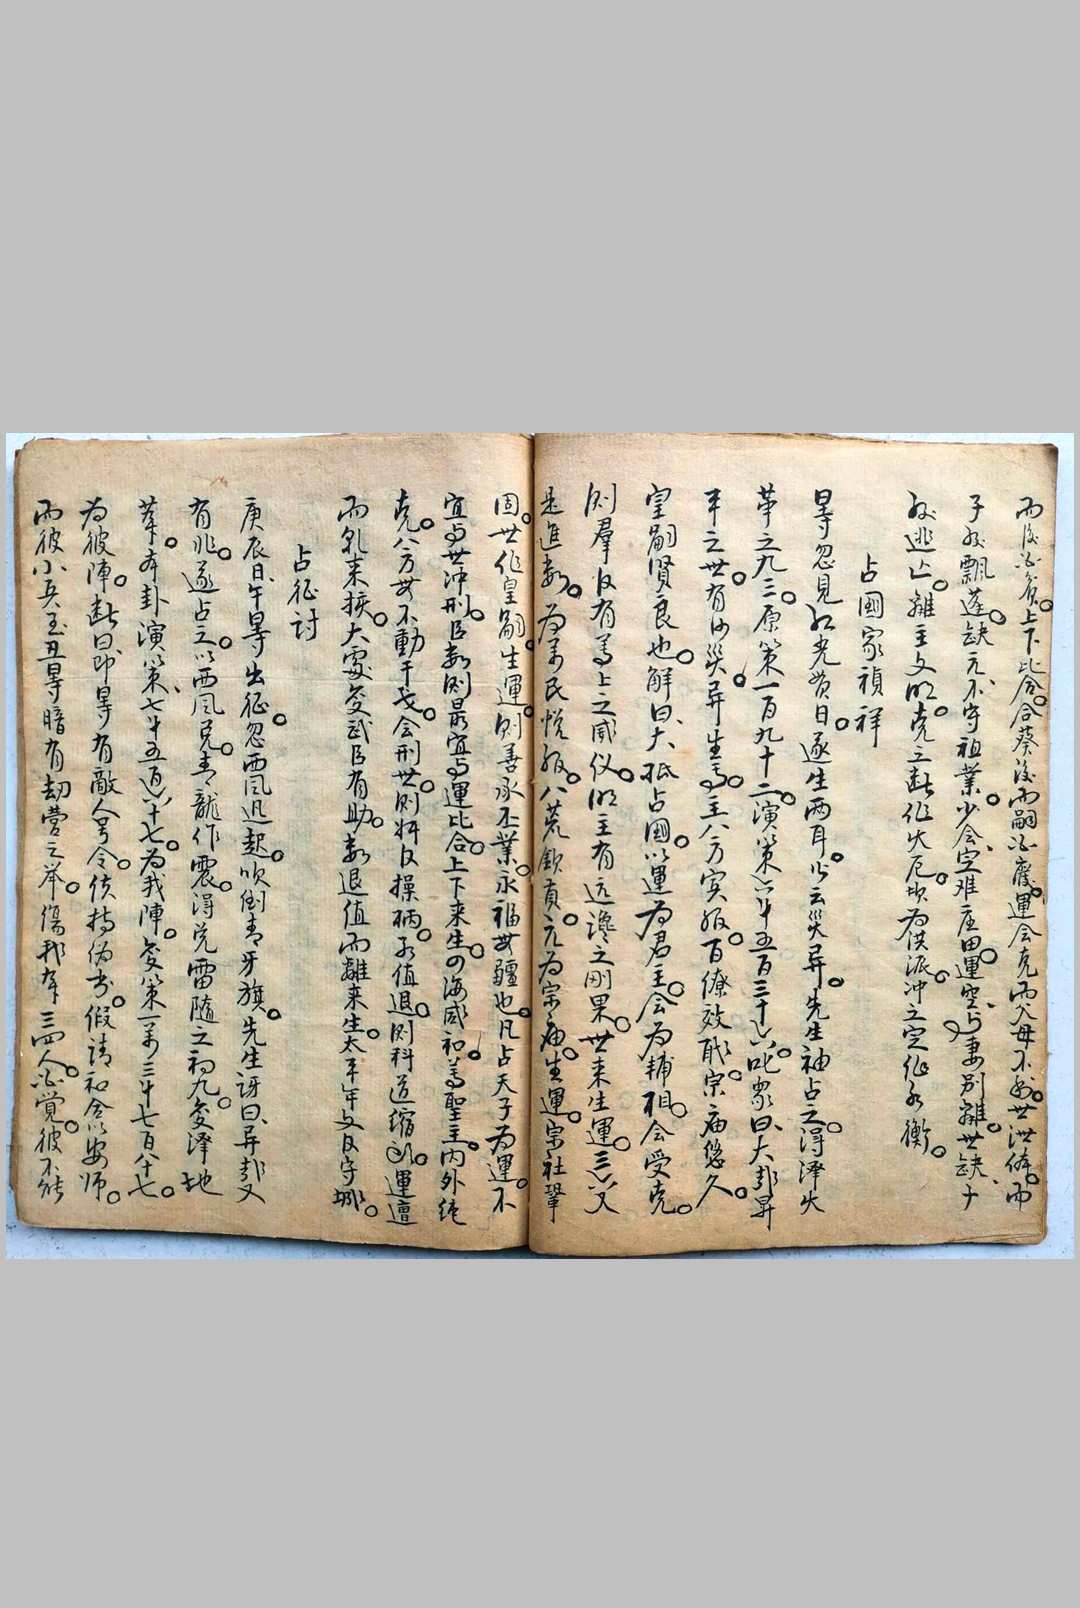 而後必貧。上下比合。合葬後而嗣必廢。運会克而父母不利。世洪俦。而
子必飄蓬。缺元、不守祖業。少会、定难庄田。運空与妻別離。世缺、子
必逃亡。離主文明。克之断作火厄。坎为侠派。冲之定作水
占國家禎祥
晷忽見红光贯日。遂生两耳。以云災异。先生袖占之。得澤火
革之九三。原策一百九十二。演策六千五百三十六。叱象曰、大邦昇
平之世。有何災异。生焉。主八方实服。百僚效职。宗庙悠久。
皇嗣賢良也。解曰、大抵占國。以運为君主。会为輔相。会受克。
則羣臣有善上之風仪。明主有远谗之刚果。世来生運。三六父
是進数。为萬民悦服。八荒欽貢。元为宗庙。生運。宗社鞏
固。世作皇嗣。生運。則善承丕業。永福無疆也。凡占天子为運。不
宜与世冲刑。臣数則最宜与運比合。上下来生。四海咸和善聖主。内外純
克。八方毋不動干戈。会刑世。則奸臣操柄。元值退。則科道缩頭。運遭
而乳来挨。大處变武臣有助。数退值而離来生。太平年文臣守城。
占征討
庚辰日、午晷出征。忽西風迅起。吹倒青牙旗。先生訝曰、异哉又
有兆。遂占之。以西風兑。青龍作震。得兑雷隨之初九。变澤地
萃。本卦演策、七千五百六十七。为我陣。变策一萬三千七百八十七。
为彼陣。断曰、即晷有敵人号令。使持伪书。假請和会以安师。
而彼小兵至丑晷暗有劫營之举。傷我軍三四人。必覺。彼不能